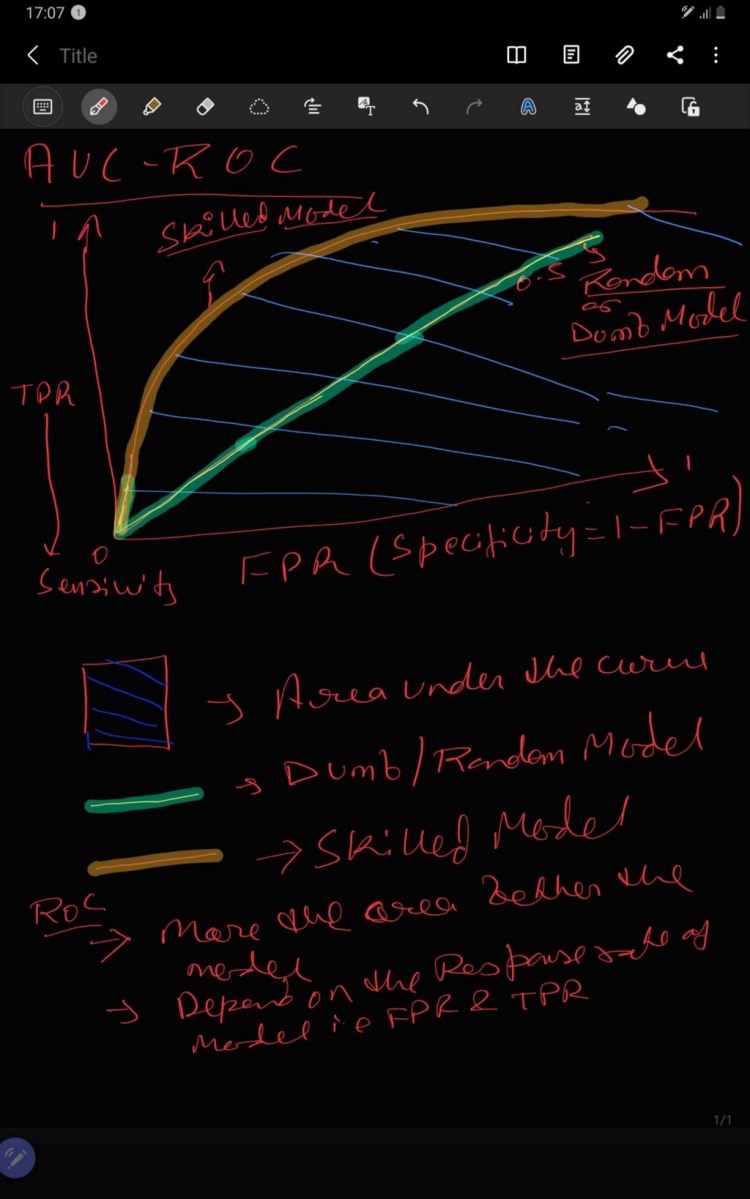 17:07 1
Title
A
AUC-ROC
1
Skilled Model
0.5
Random
or
Dumb Model
TPR
1
0
Sensivity
FPR (Specificity = 1 - FPR)
→ Area under the curve
→ Dumb/Random Model
→ Skilled Model
ROC
→ More the area better the
model
→ Depend on the Response rate of
Model i.e FPR & TPR
1/1